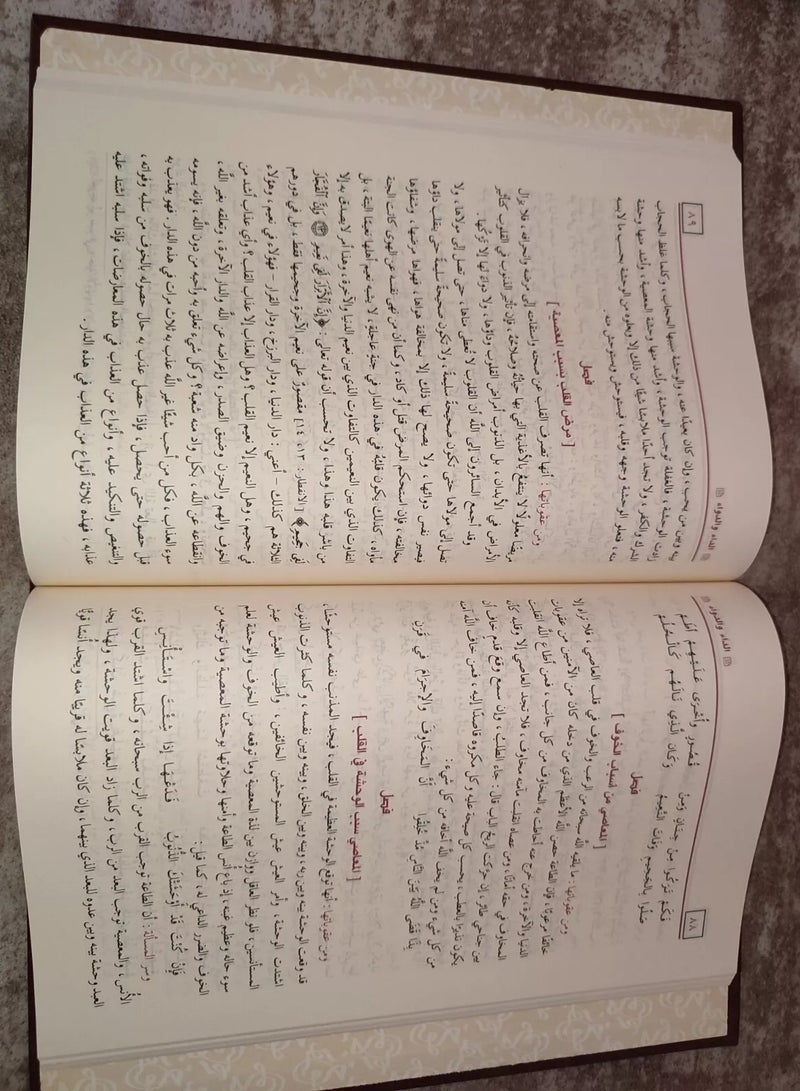 ٨٨
الداء والدواء
قُصُورٍ وَأُخْرَى عَلَيْهِمُ أُطُمْ
فَكَمْ تَرَكُوا مِنْ جِنَانٍ وَمِنْ
وَكَانَ الَّذِي نَالَهُمْ كَالْحُلُمْ
صَلُوا بِالجَحِيمِ وَفَاتَ النَّعِيمُ
فصل
[ المعاصي من أسباب الخوف ]
ومن عقوباتها : ما يلقيه الله سبحانه من الرعب والخوف في قلب العاصي ، فلا تراه إلا
خائفًا مرعوبًا ، فإن الطاعة حصن الله الأعظم الذي من دخله كان من الآمنين من عقوبات
الدنيا والآخرة ، ومن خرج عنه أحاطت به المخاوف من كل جانب ، فمن أطاع الله انقلبت
المخاوف في حقه أمانًا ، ومن عصاه انقلبت مآمنه مخاوف ، فلا تجد العاصي إلا وقلبه كأنه
بين جناحي طائر ، إن حركت الريح الباب قال : جاء الطلب ، وإن سمع وقع قدم خاف أن
يكون نذيرًا بالعطب ، يحسب كل صيحة عليه وكل مكروه قاصدًا إليه ، فمن خاف الله آمنه
من كل شيء ، ومن لم يخف الله أخافه من كل شيء :
بِذَا قَضَى اللهُ بَيْنَ النَّاسِ مُذْ خُلِقُوا
أَنَّ المَخَاوِفَ وَالإِجْرَامَ فِي قَرَنِ
فصل
[ المعاصي سبب الوحشة في القلب ]
ومن عقوباتها : أنها توقع الوحشة العظيمة في القلب ، فيجد المذنب نفسه مستوحشًا ،
قد وقعت الوحشة بينه وبين ربه ، وبينه وبين الخلق ، وبينه وبين نفسه ، وكلما كثرت الذنوب
اشتدت الوحشة ، وأمر العيش عيش المستوحشين الخائفين ، وأطيب العيش عيش
المستأنسين ، فلو نظر العاقل ووازن بين لذة المعصية وما توقعه من الخوف والوحشة لعلم
سوء حاله وعظيم غبنه ، إذ باع أنس الطاعة وأمنها وحلاوتها بوحشة المعصية وما توجبه من
الخوف والضرر الداعي له، كما قيل :
فَإِنْ كُنْتَ قَدْ أَوْحَشَتْكَ الذُّنُوبُ
فَدَعْهَا إِذَا شِئْتَ وَاسْتَأْنِسِ
وسر المسألة : أن الطاعة توجب القرب من الرب سبحانه ، وكلما اشتد القرب قوي
الأنس ، والمعصية توجب البعد من الرب ، وكلما زاد البعد قويت الوحشة ، ولهذا يجد
العبد وحشة بينه وبين عدوه للبعد الذي بينهما ، وإن كان ملابسًا له قريبًا منه ويجد أُنسًا قويًّا
الداء والدواء
٨٩
بينه وبين من يحب ، وإن كان بعيدًا عنه ، والوحشة سببها الحجاب ، وكلما غلظ الحجاب
زادت الوحشة ، فالغفلة توجب الوحشة ، وأشد منها وحشة المعصية ، وأشد منها وحشة
الشرك والكفر ، ولا تجد أحدًا ملابسًا شيئًا من ذلك إلا ويعلوه من الوحشة بحسب ما لابسه
منه ، فتعلو الوحشة وجهه وقلبه ، فيستوحش ويستوحش منه.
فصل
[ مرض القلب بسبب المعصية ]
ومن عقوباتها : أنها تصرف القلب عن صحته واستقامته إلى مرضه وانحرافه ، فلا يزال
مريضًا معلولًا لا ينتفع بالأغذية التي بها حياته وصلاحُه ، فإن تأثير الذنوب في القلوب كتأثير
الأمراض في الأبدان ، بل الذنوب أمراض القلوب وداؤها ، ولا دواءَ لها إلا تركُها.
وقد أجمع السائرون إلى الله أن القلوب لا تُعطى مناها ، حتى تصل إلى مولاها ، ولا
تصل إلى مولاها حتى تكون صحيحةً سليمةً ، ولا تكون صحيحةً سليمةً حتى ينقلب داؤها
فيصير نفس دوائها ، ولا يصح لها ذلك إلا بمخالفة هواها ، فهواها مرضها ، وشفاؤها
مخالفته ، فإن استحكم المرض قتل أو كاد ، وكما أن من نهى نفسه عن الهوى كانت الجنة
مأواه ، كذلك يكون قلبُهُ في هذه الدار في جنةٍ عاجلةٍ ، لا يشبه نعيم أهلها نعيمًا البتة ، بل
التفاوت الذي بين النعيمين كالتفاوت الذي بين نعيم الدنيا والآخرة ، وهذا أمر لا يصدق به إلا
من باشر قلبه هذا وهذا ، ولا تحسب أن قوله تعالى : ﴿ إِنَّ ٱلْأَبْرَارَ لَفِى نَعِيمٍ ۝ وَإِنَّ ٱلْفُجَّارَ
لَفِى جَحِيمٍ ﴾ [ الانفطار: ١٣ ، ١٤ ] مقصورٌ على نعيم الآخرة وجحيمها فقط ، بل في دورهم
الثلاثة هم كذلك - أعني : دار الدنيا ، ودار البرزخ ، ودار القرار - فهؤلاء في نعيم ، وهؤلاء
في جحيم ، وهل النعيم إلا نعيم القلب ؟ وهل العذاب إلا عذاب القلب ؟ وأي عذاب أشد من
الخوف والهم والحزن وضيق الصدر ، وإعراضه عن الله والدار الآخرة ، وتعلقه بغير الله ،
وانقطاعه عن الله ، بكل واد منه شعبة ؟ وكل شيء تعلق به وأحبه من دون الله ، فإنه يسومه
سوء العذاب ، فكل من أحب شيئًا غير الله عذب به ثلاث مرات في هذه الدار، فهو يعذب به
قبل حصوله حتى يحصل ، فإذا حصل عذب به حال حصوله بالخوف من سلبه وفواته ،
والتنغيص والتنكيد عليه ، وأنواع من العذاب في هذه المعارضات ، فإذا سلبه اشتد عليه
عذابه ، فهذه ثلاثة أنواع من العذاب في هذه الدار.